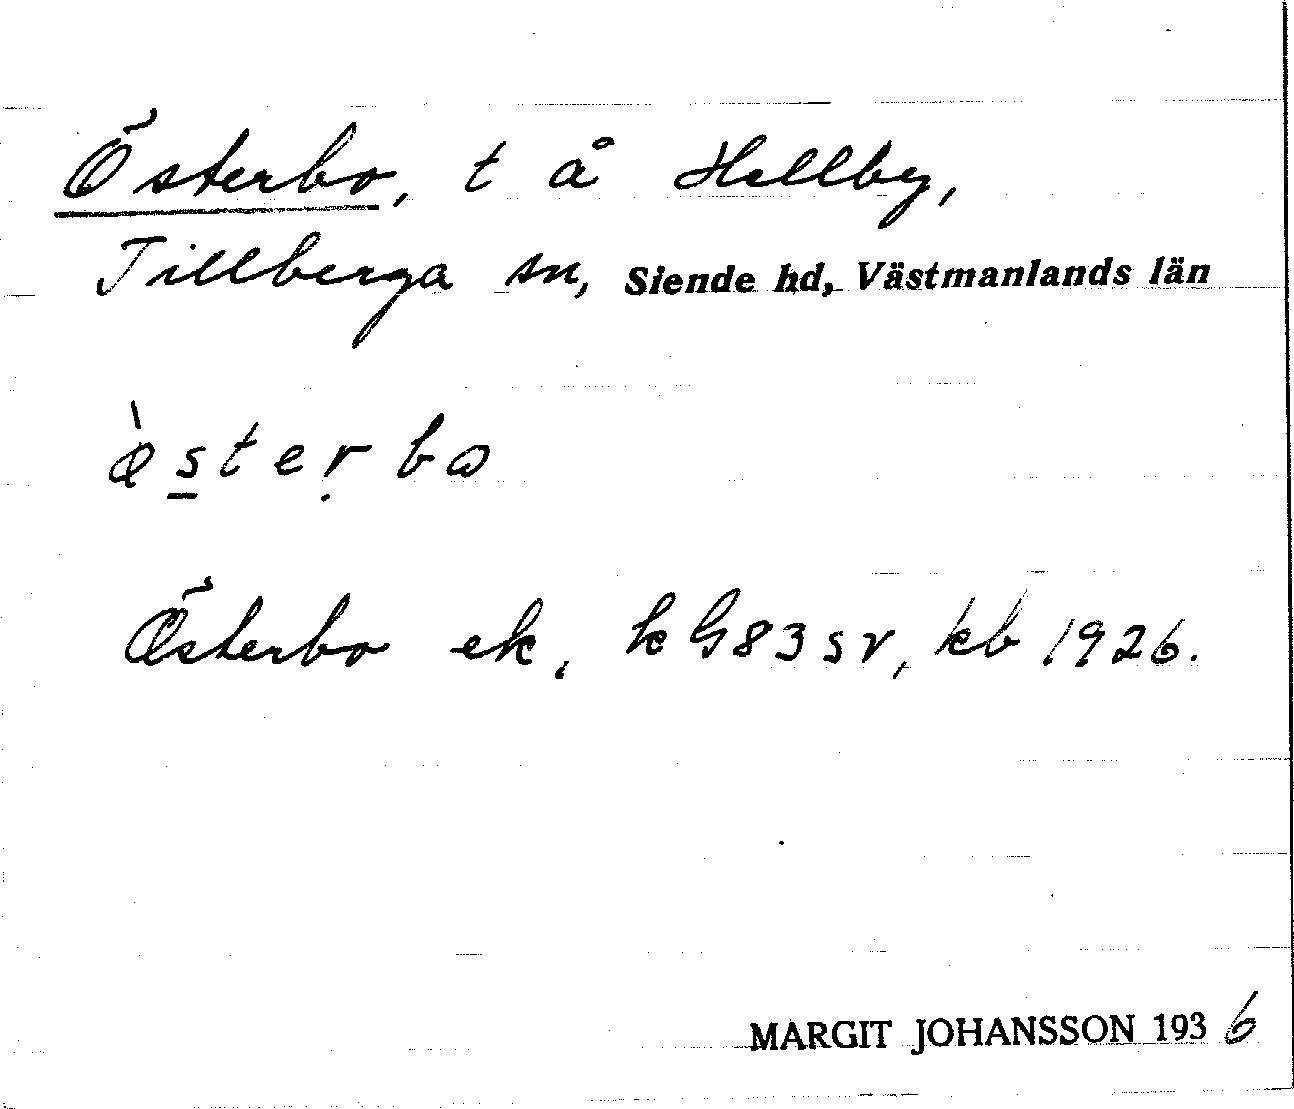 Österbo, t å Hellby,
Tillberga sn, Siende hd, Västmanlands län
ø̀s̲teṛbω
Österbo ek, k G83 sv, kb 1926.
MARGIT JOHANSSON 1936